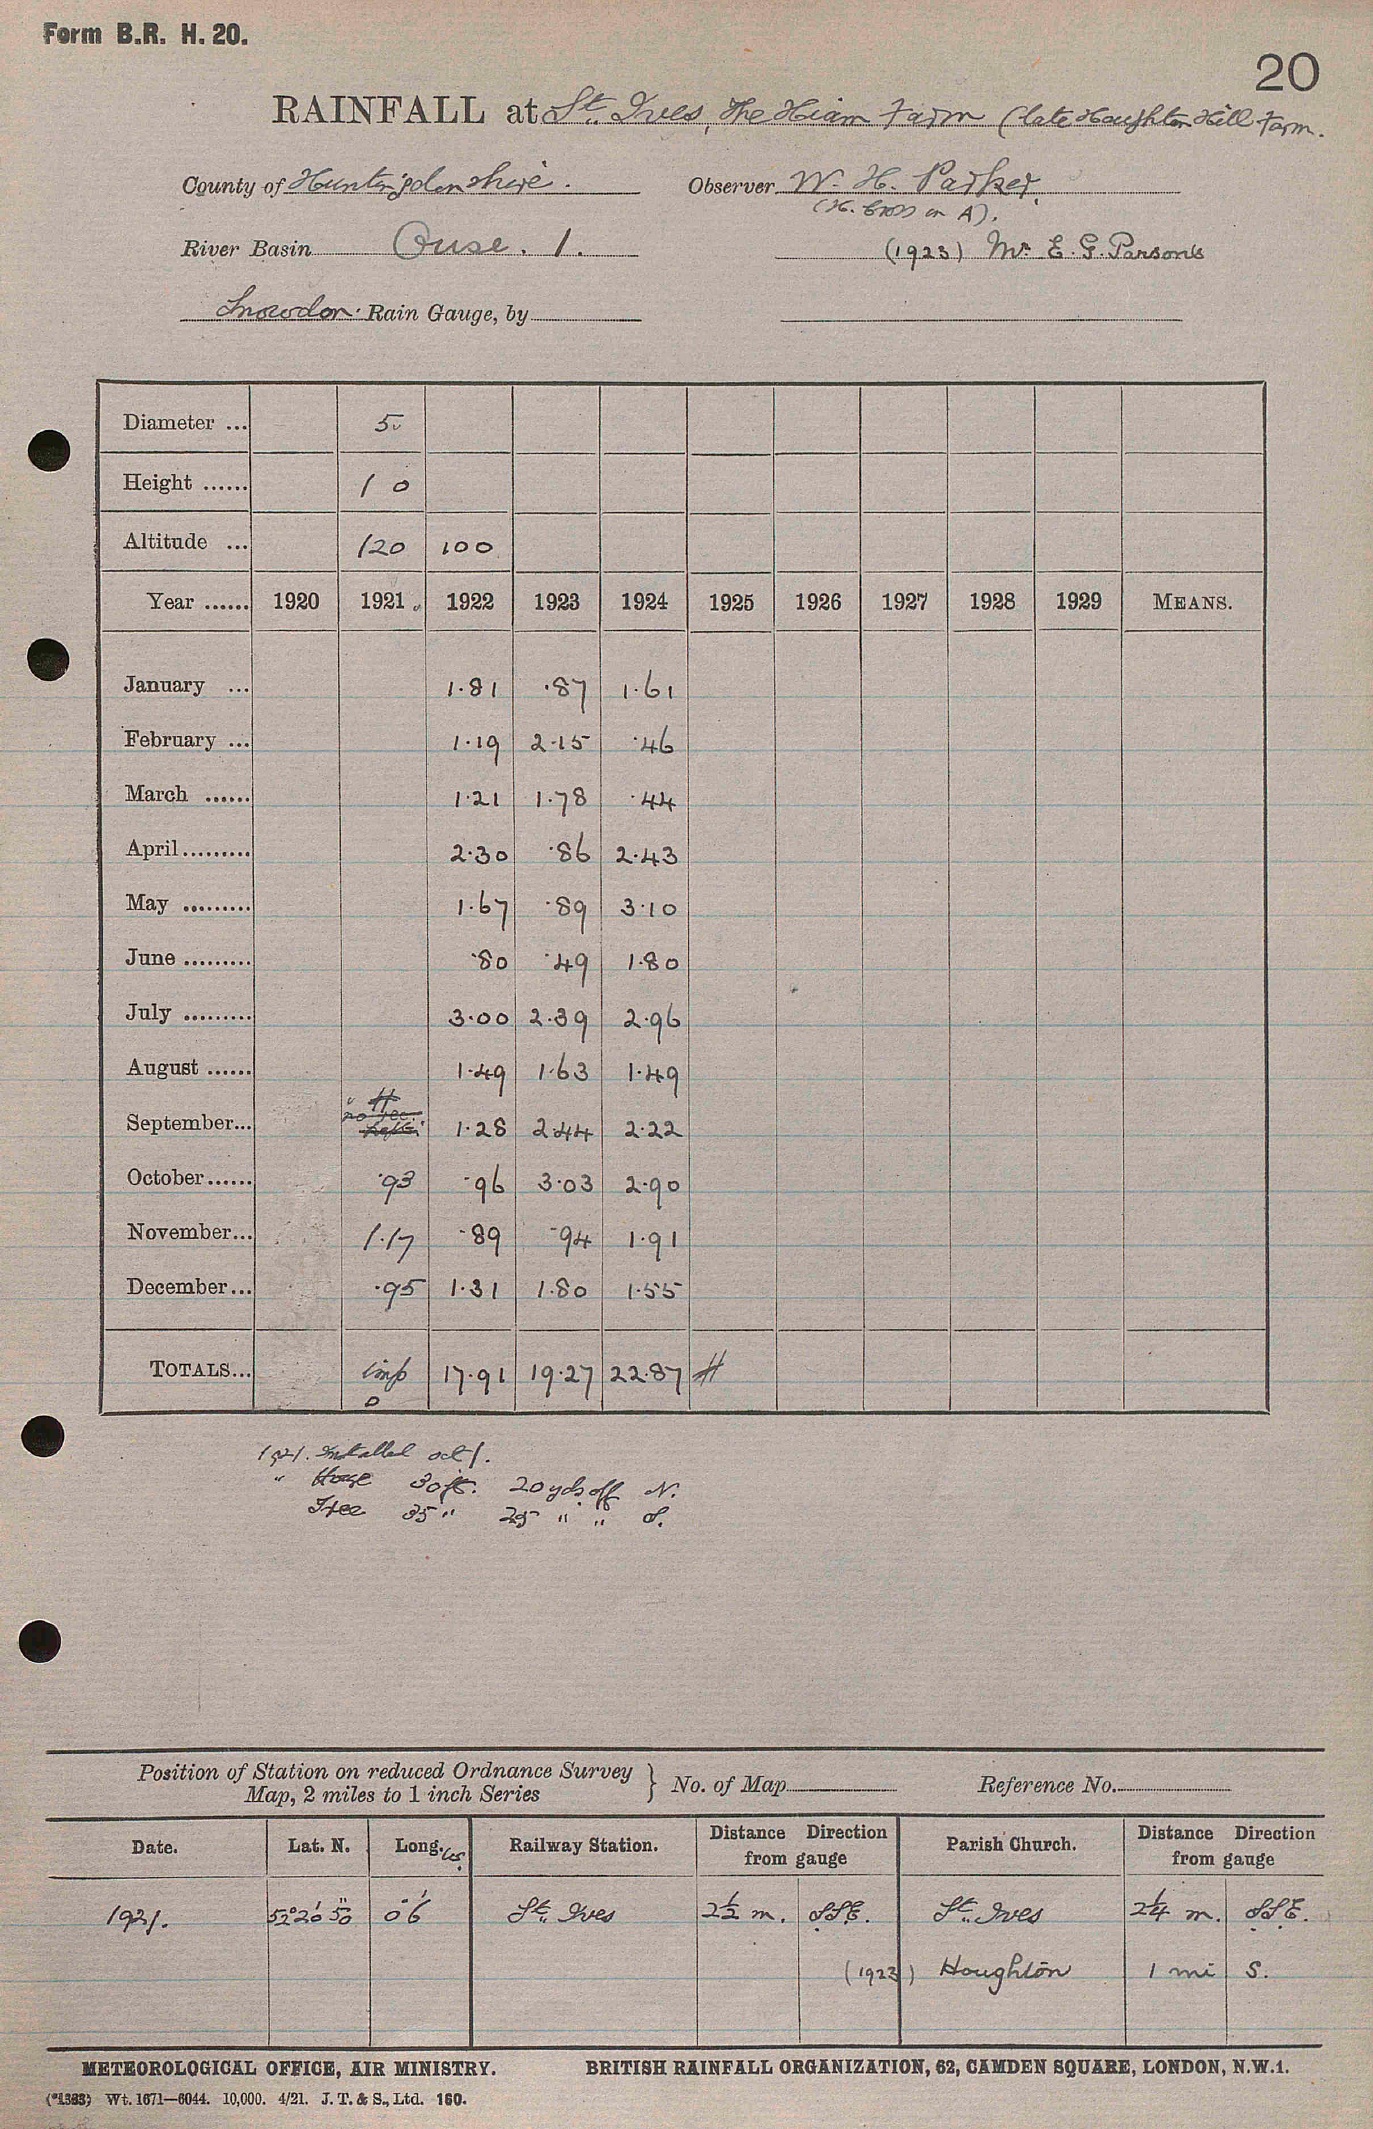 Form B.R. H. 20.
20
RAINFALL at St. Ives, The Hiam Farm (late Houghton Hill Farm.
County of Huntingdonshire. Observer W. H. Parker.
(H. Cross on A).
River Basin Ouse. 1. (1923) Mr. E. G. Parsons
Snowdon. Rain Gauge, by
Diameter ... 5
Height ...... 1 0
Altitude ... 120 100
Year ...... 1920 1921 1922 1923 1924 1925 1926 1927 1928 1929 MEANS.
January ... 1.81 .87 1.61
February ... 1.19 2.15 .46
March ...... 1.21 1.78 .44
April......... 2.30 .86 2.43
May ......... 1.67 .89 3.10
June ......... .80 .49 1.80
July ......... 3.00 2.39 2.96
August ...... 1.49 1.63 1.49
September... no rec. 1.28 2.44 2.22
October...... .93 .96 3.03 2.90
November... 1.17 .89 .94 1.91
December... .95 1.31 1.80 1.55
TOTALS... imp 17.91 19.27 22.87 #
1921. Installed oct 1.
" House 30ft. 20 yds off N.
Tree 35 " 25 " " S.
Position of Station on reduced Ordnance Survey
Map, 2 miles to 1 inch Series } No. of Map Reference No.
Date. Lat. N. Long. W. Railway Station. Distance Direction from gauge Parish Church. Distance Direction from gauge
1921. 52° 20' 50" 0° 6' St. Ives 2½ m. SSE. St. Ives 2¼ m. SSE.
(1923) Houghton 1 mi S.
METEOROLOGICAL OFFICE, AIR MINISTRY. BRITISH RAINFALL ORGANIZATION, 62, CAMDEN SQUARE, LONDON, N.W.1.
(*1383) Wt. 1671—6044. 10,000. 4/21. J. T. & S., Ltd. 160.